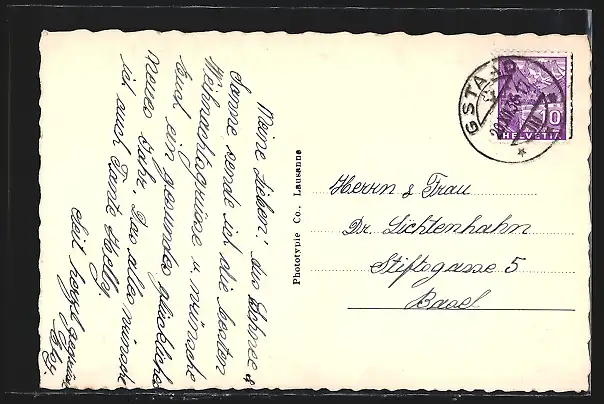 Meine Lieben! Aus Schnee &
Sonne sende ich die besten
Weihnachtsgrüsse & wünsche
Euch ein gesundes glückliches
neues Jahr. Das alles wünsche
ich auch Tante Hedy.
herzl.
Phototypie Co., Lausanne
GSTAAD
HELVETIA
Herrn & Frau
Dr. Lichtenhahn
Stiftsgasse 5
Basel